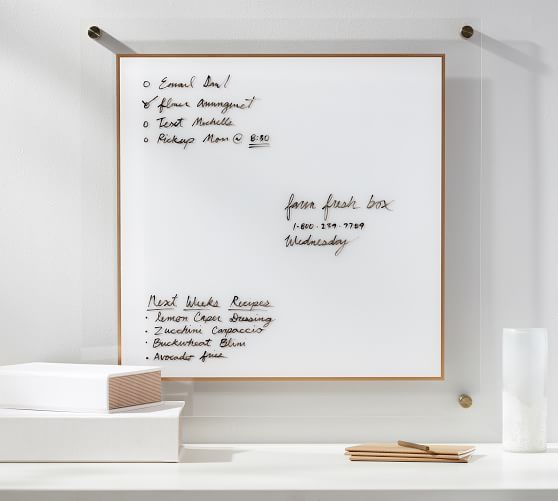 Email Dan!
flower arrangment
Text Michelle
Pickup Mom @ 8:30
farm fresh box
1-800-239-7789
Wednesday
Next Weeks Recipes
· lemon Caper Dressing
· Zucchini Carpaccio
· Buckwheat Blini
· Avocado fries